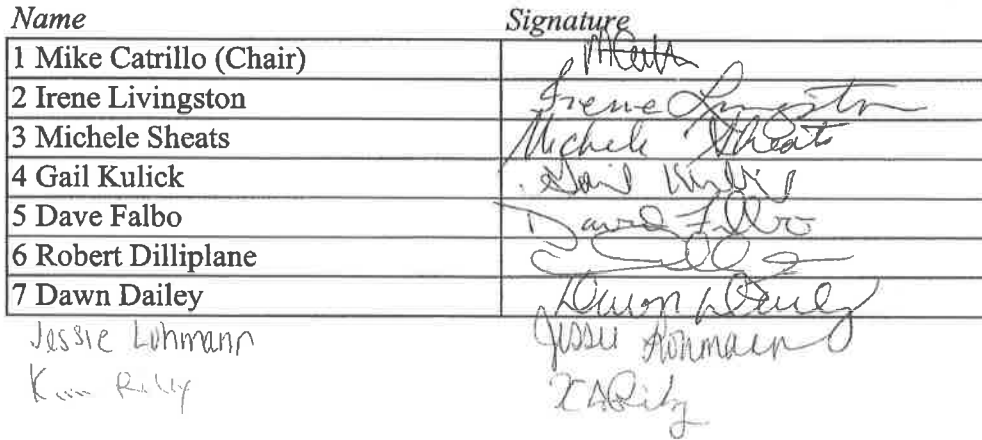 Name Signature
1 Mike Catrillo (Chair)
2 Irene Livingston Irene Livingston
3 Michele Sheats Michele Sheats
4 Gail Kulick Gail Kulick
5 Dave Falbo David Falbo
6 Robert Dilliplane
7 Dawn Dailey Dawn Dailey
Jessie Jessie
Kim